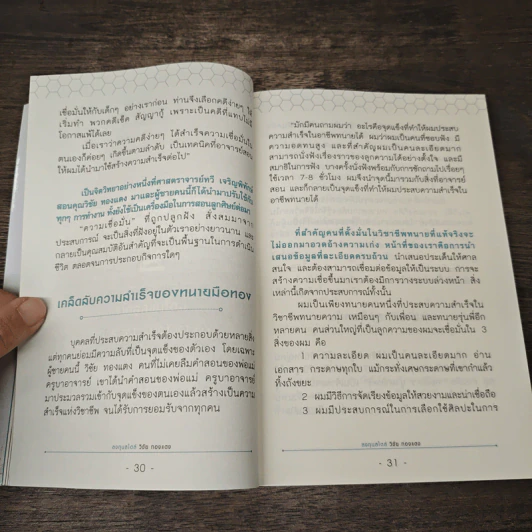 เชื่อมั่นให้กับเด็กๆ อย่างเราก่อน ท่านจึงเลือกคดีง่ายๆ ให้
เริ่มทำ พวกคดีเช็ค สัญญากู้ เพราะเป็นคดีที่แทบไม่มี
โอกาสแพ้ได้เลย
เมื่อเราว่าความคดีง่ายๆ ได้สำเร็จความเชื่อมั่นใน
ตนเองก็ค่อยๆ เกิดขึ้นตามลำดับ เป็นเทคนิคที่อาจารย์สอน
ให้ผมได้นำมาใช้สร้างความสำเร็จต่อไป"
เป็นจิตวิทยาอย่างหนึ่งที่ศาสตราจารย์ทวี เจริญพิทักษ์
สอนคุณวิชัย ทองแตง มาและผู้ชายคนนี้ก็ได้นำมาปรับใช้กับ
ทุกๆ การทำงาน ทั้งยังใช้เป็นเครื่องมือในการสอนลูกศิษย์ต่อมา
"ความเชื่อมั่น" ที่ถูกปลูกฝัง สั่งสมมาจาก
ประสบการณ์ จะเป็นสิ่งที่ฝังอยู่ในตัวเราอย่างยาวนาน และ
กลายเป็นคุณสมบัติอันสำคัญที่จะเป็นพื้นฐานในการดำเนิน
ชีวิต ตลอดจนการประกอบกิจการใดๆ
เคล็ดลับความสำเร็จของทนายมือทอง
บุคคลที่ประสบความสำเร็จต้องประกอบด้วยหลายสิ่ง
แต่ทุกคนย่อมมีความลับที่เป็นจุดแข็งของตัวเอง โดยเฉพาะ
ผู้ชายคนนี้ วิชัย ทองแตง คนที่ไม่เคยลืมคำสอนของพ่อแม่
ครูบาอาจารย์ เขาได้นำคำสอนของพ่อแม่ ครูบาอาจารย์
มาประมวลรวมเข้ากับจุดแข็งของตนเองแล้วสร้างเป็นความ
สำเร็จแห่งวิชาชีพ จนได้รับการยอมรับจากทุกคน
วิชัย ทองแตง
- 30 -
"มักมีคนถามผมว่า อะไรคือจุดแข็งที่ทำให้ผมประสบ
ความสำเร็จในอาชีพทนายได้ ผมว่าผมเป็นคนที่ชอบฟัง มี
ความอดทนสูง และที่สำคัญผมเป็นคนละเอียดมาก
สามารถนั่งฟังเรื่องราวของลูกความได้อย่างตั้งใจ และมี
สมาธิในการฟัง บางครั้งนั่งฟังพร้อมกับการซักถามไปเรื่อยๆ
ใช้เวลา 7-8 ชั่วโมง ผมจึงนำจุดนี้มารวมกับสิ่งที่อาจารย์
สอน และก็กลายเป็นจุดแข็งที่ทำให้ผมประสบความสำเร็จใน
อาชีพทนายได้
ที่สำคัญคนที่ตั้งมั่นในวิชาชีพทนายที่แท้จริงจะ
ไม่ออกมาอวดอ้างความเก่ง หน้าที่ของเราคือการนำ
เสนอข้อมูลที่ละเอียดครบถ้วน นำเสนอประเด็นให้ศาล
สนใจ และต้องสามารถเชื่อมต่อข้อมูลให้เป็นระบบ การจะ
สร้างความเชื่อขึ้นมาเราต้องมีการวางระบบล่วงหน้า สิ่ง
เหล่านี้เกิดจากประสบการณ์ทั้งนั้น
ผมเป็นเพียงทนายคนหนึ่งที่ประสบความสำเร็จใน
วิชาชีพทนายความ เหมือนๆ กับเพื่อน และทนายรุ่นพี่อีก
หลายคน คนส่วนใหญ่ที่เป็นลูกความของผมจะเชื่อมั่นใน 3
สิ่งของผม คือ
1 ความละเอียด ผมเป็นคนละเอียดมาก อ่าน
เอกสาร กระดาษทุกใบ แม้กระทั่งเศษกระดาษที่เขาทำแล้ว
ทิ้งถังขยะ
2 ผมมีวิธีการจัดเรียงข้อมูลให้สวยงามและน่าเชื่อถือ
3 ผมมีประสบการณ์ในการเลือกใช้ศิลปะในการ
วิชัย ทองแตง
- 31 -